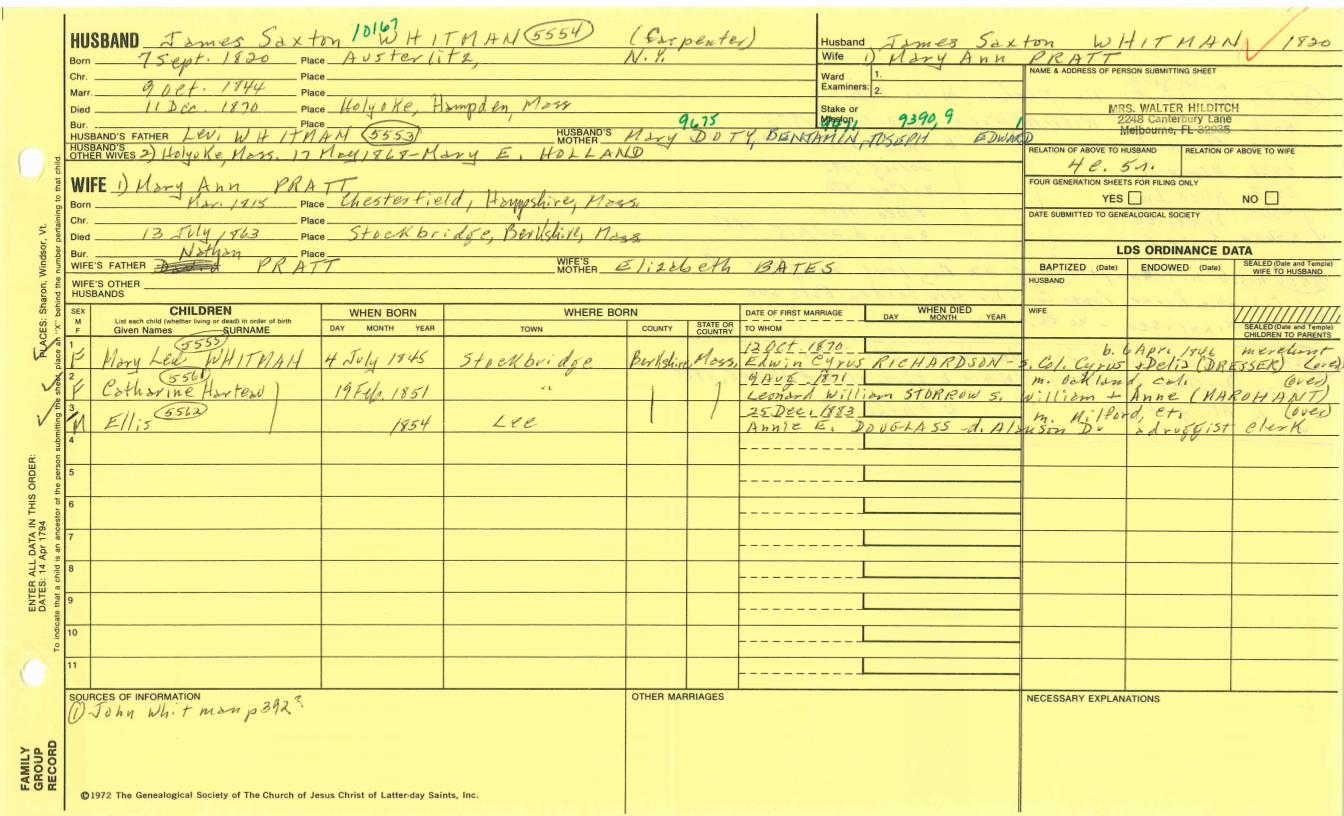 HUSBAND James Saxton WHITMAN 5554 (Carpenter)
10167
Born 7 Sept. 1820 Place Austerlitz, N.Y.
Chr. Place
Marr. 9 Oct. 1844 Place
Died 11 Dec. 1870 Place Holyoke, Hampden, Mass
Bur. Place
HUSBAND'S FATHER Levi WHITMAN 5553 HUSBAND'S MOTHER Mary DOTY, BENJAMIN, JOSEPH EDWARD
9675 9390,9 1
HUSBAND'S OTHER WIVES 2) Holyoke, Mass. 17 May 1868-Mary E. HOLLAND
WIFE 1) Mary Ann PRATT
Born Mar. 1815 Place Chesterfield, Hampshire, Mass
Chr. Place
Died 13 July 1863 Place Stockbridge, Berkshire, Mass
Bur. Place
WIFE'S FATHER Nathan PRATT WIFE'S MOTHER Elizabeth BATES
WIFE'S OTHER HUSBANDS
Husband James Saxton WHITMAN 1820
Wife 1) Mary Ann PRATT
Ward Examiners: 1. 2.
Stake or Mission
NAME & ADDRESS OF PERSON SUBMITTING SHEET
MRS. WALTER HILDITCH
2248 Canterbury Lane
Melbourne, FL 32935
RELATION OF ABOVE TO HUSBAND RELATION OF ABOVE TO WIFE
4c. 5r.
FOUR GENERATION SHEETS FOR FILING ONLY
YES NO
DATE SUBMITTED TO GENEALOGICAL SOCIETY
LDS ORDINANCE DATA
BAPTIZED (Date) ENDOWED (Date) SEALED (Date and Temple) WIFE TO HUSBAND
HUSBAND
WIFE
SEALED (Date and Temple) CHILDREN TO PARENTS
SEX M F CHILDREN List each child (whether living or dead) in order of birth Given Names SURNAME
WHEN BORN DAY MONTH YEAR
WHERE BORN TOWN COUNTY STATE OR COUNTRY
DATE OF FIRST MARRIAGE TO WHOM
WHEN DIED DAY MONTH YEAR
1 F Mary Levi WHITMAN 5555 4 July 1845 Stockbridge Berkshire, Mass. 12 Oct. 1870 b. 6 Apr. 1846 merchant
Edwin Cyrus RICHARDSON-s. Col. Cyrus + Delia (DRESSER) (over)
2 F Catharine 5561 19 Feb. 1851 " 9 Aug. 1871 m. Oakland, Cal. (over)
Leonard William STORROW s. William + Anne (MAROHANT)
3 M Ellis 5562 1854 Lee 25 Dec. 1883 m. Milford, Ct. (over)
Annie E. DOUGLASS-d. Alanson D. druggist clerk
4
5
6
7
8
9
10
11
SOURCES OF INFORMATION
① John Whitman p392
OTHER MARRIAGES
NECESSARY EXPLANATIONS
©1972 The Genealogical Society of The Church of Jesus Christ of Latter-day Saints, Inc.
FAMILY GROUP RECORD
ENTER ALL DATA IN THIS ORDER:
DATES: 14 Apr 1794 PLACES: Sharon, Windsor, Vt.
To indicate that a child is an ancestor of the person submitting the sheet, place an "X" behind the number pertaining to that child.